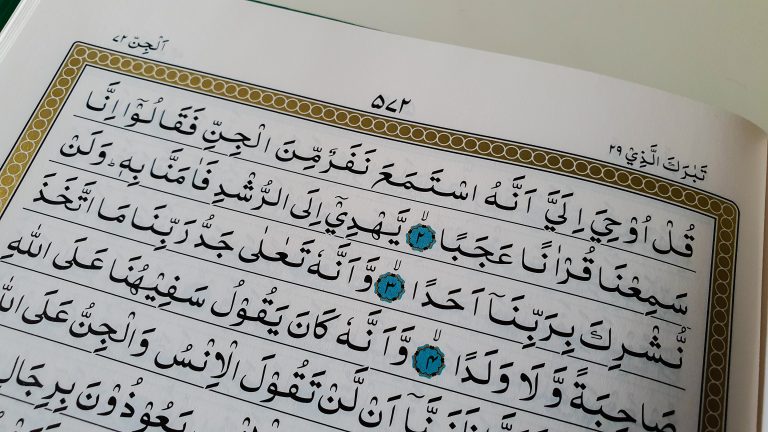 اَلْجِنّ ٧٢
٥٧٢
تَبٰرَكَ الَّذِيْ ٢٩
قُلْ اُوْحِيَ اِلَيَّ اَنَّهُ اسْتَمَعَ نَفَرٌ مِّنَ الْجِنِّ فَقَالُوْٓا اِنَّا
سَمِعْنَا قُرْاٰنًا عَجَبًا ۙ‏﴿۲﴾ يَّهْدِيْٓ اِلَى الرُّشْدِ فَاٰمَنَّا بِهٖ ؕ وَلَنْ
نُّشْرِكَ بِرَبِّنَآ اَحَدًا ۙ‏﴿۳﴾ وَّاَنَّهٗ تَعٰلٰى جَدُّ رَبِّنَا مَا اتَّخَذَ
صَاحِبَةً وَّلَا وَلَدًا ۙ‏﴿۴﴾ وَّاَنَّهٗ كَانَ يَقُوْلُ سَفِيْهُنَا عَلَى اللّٰهِ
اَنْ لَّنْ تَقُوْلَ الْاِنْسُ وَالْجِنُّ عَلَى
يَعُوْذُوْنَ بِرِجَالٍ